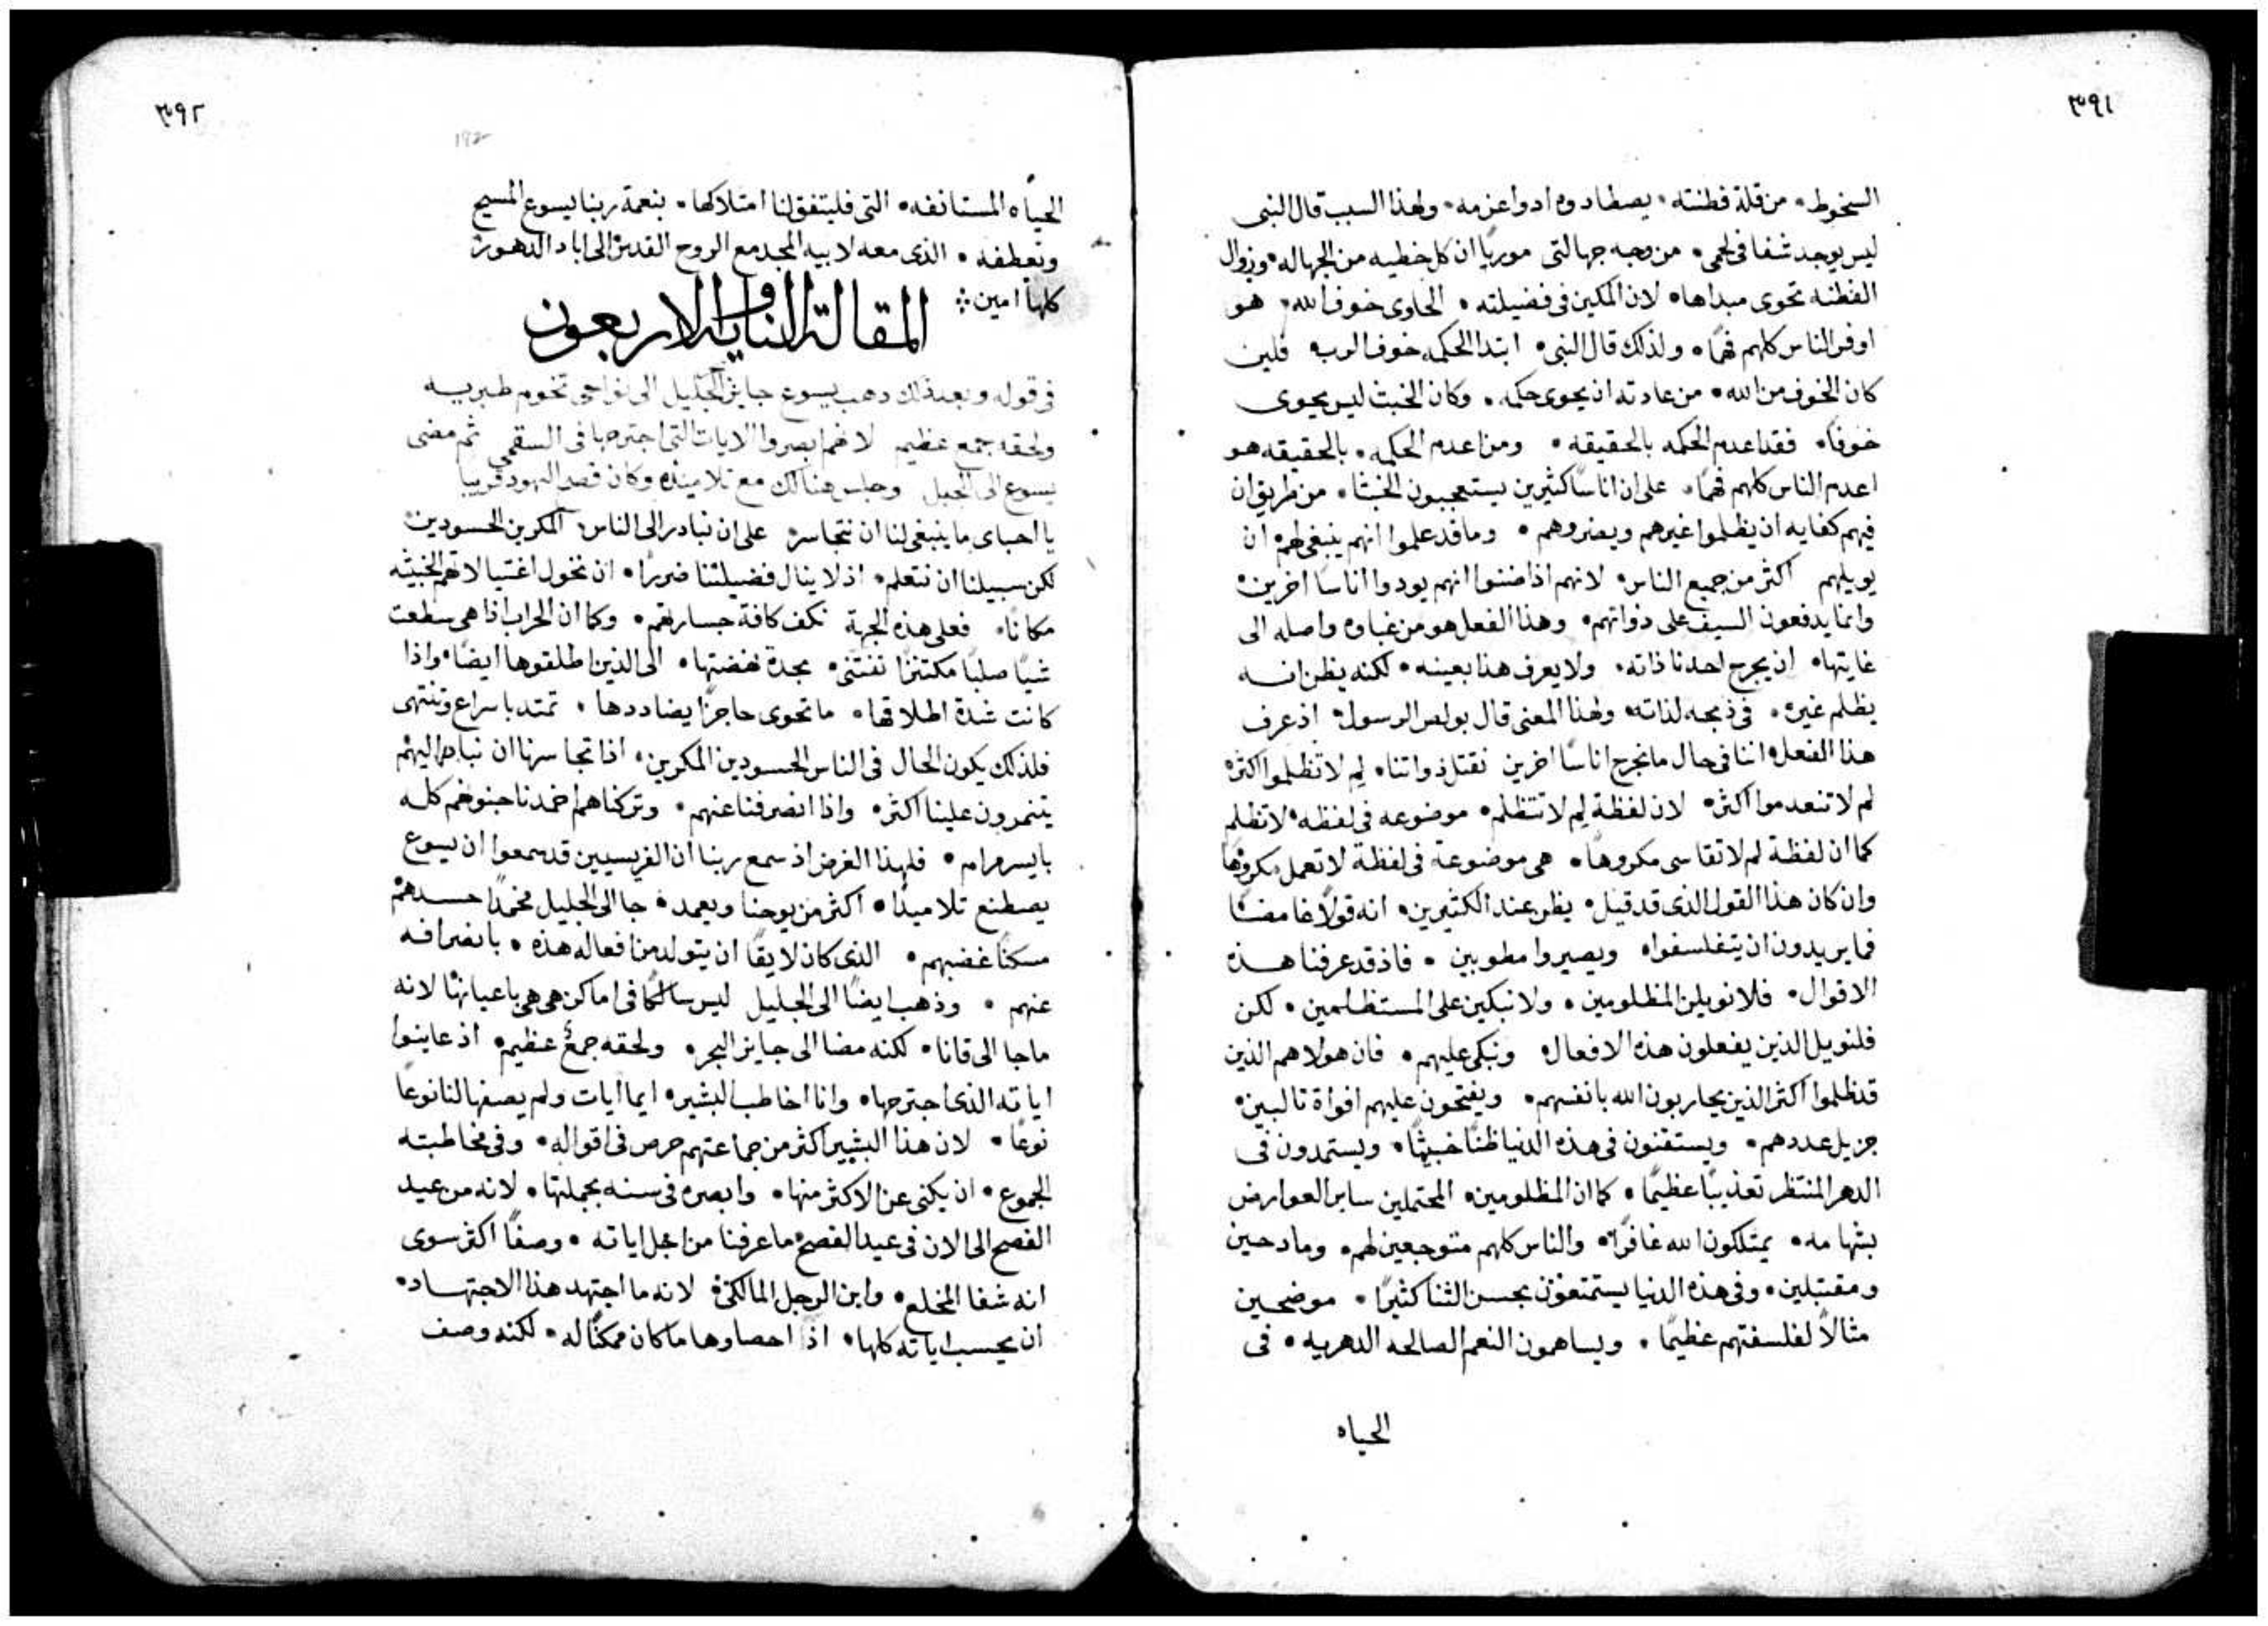 ٣٩١
السخوط٠ من قلة فطنته٠ يصطاد وه ادوا عزمه٠ ولهذا السبب قال النبى
ليس يوجد شفا فى لحمى٠ من وجه جهالتى موريًا ان كل خطيه من الجهاله٠ وزوال
الفطنه تحوى مبداها٠ لان المكين فى فضيلته٠ الحاوى خوف الله٠ هو
اوفر الناس كلهم فهمًا٠ ولذلك قال النبى٠ ابتدا الحكمه خوف الرب٠ فلين
كان الخوف من الله٠ من عادته ان يحوى حكمه٠ وكان الخبث ليس يحوى
خوفًا٠ فقد اعدم الحكمه بالحقيقه٠ ومن اعدم الحكمه٠ بالحقيقه هو
اعدم الناس كلهم فهمًا٠ على ان اناسًا كثيرين يستعجبون الخبثا٠ من طريق ان
فيهم كفايه ان يظلموا غيرهم ويضروهم٠ وما قد علموا انهم ينبغى لهم ان
يويلهم اكثر من جميع الناس٠ لانهم اذا ضنوا انهم يودوا اناسًا اخرين٠
وانما يدفعون السيف على ذواتهم٠ وهذا الفعل هو من غباوه واصله الى
غايتها٠ ان يجرح احدنا ذاته٠ ولا يعرف هذا بعينه٠ لكنه يظن انه
يظلم غيره٠ فى ذبحه لذاته٠ ولهذا المعنى قال بولس الرسول٠ اذ عرف
هذا الفعل٠ اننا فى حال ما نجرح اناسًا اخرين نقتل ذواتنا٠ لِم لا تظلموا اكثر٠
لم لا تنعدموا اكثر٠ لان لفظة لِم لا تتظلم٠ موضوعه فى لفظه٠ لا تظلم
كما ان لفظة لم لا تقاسى مكروهًا٠ هى موضوعة فى لفظة لا تعمل مكروهًا
وان كان هذا القول الذى قد قيل٠ يظن عند الكثيرين٠ انه قولًا غامضًا
فما يريدون ان يتفلسفوا٠ ويصيروا مطوبين٠ فاذ قد عرفنا هذه
الاقوال٠ فلا نويلن المظلومين٠ ولا نبكين على المستظلمين٠ لكن
فلنويل الذين يفعلون هذه الافعال٠ ونبكى عليهم٠ فان هولا هم الذين
قد ظلموا اكثر الذين يحاربون الله بانفسهم٠ ويفتحون عليهم افواة ثالبين٠
جزيل عددهم٠ ويستقنون فى هذه الدنيا ظنًا خبيثًا٠ ويستمدون فى
الدهر المنتظر تعذيبًا عظيمًا٠ كما ان المظلومين٠ المحتملين ساير العوارض
بشهامه٠ يمتلكون الله غافرًا٠ والناس كلهم متوجعين لهم٠ ومادحين
ومقتبلين٠ وفى هذه الدنيا يستمتعون بحسن الثنا كثيرًا٠ موضحين
مثالًا لفلسفتهم عظيمًا٠ ويساهمون النعم الصالحه الدهريه٠ فى
الحياه
٣٩٢
192
الحياه المستانفه٠ التى فليتفق لنا امتلاكها٠ بنعمة ربنا يسوع المسيح
وتعطفه٠ الذى معه لابيه المجد مع الروح القدس الى اباد الدهور
كلها امين
المقالة الثانية والاربعون
فى قوله وبعد ذلك ذهب يسوع جايز الجليل الى نواحى تخوم طبريه
ولحقه جمع عظيم لانهم ابصروا الايات التى اجترحها فى السقمى ثم مضى
يسوع الى الجبل وجلس هنالك مع تلاميذه وكان فصح اليهود قريبا
يا احباى ما ينبغى لنا ان نتجاسر على ان نبادر الى الناس المكرين الحسودين٠
لكن سبيلنا ان نتعلم٠ اذ لا ينال فضيلتنا ضررًا٠ ان نخول اغتيالاتهم الخبيثه
مكانًا٠ فعلى هذه الجهة نكف كافة جسارتهم٠ وكما ان الحراب اذا هى سطعت
شيًا صلبًا مكتنزًا تنثنى٠ بحدة نهضتها٠ الى الذين اطلقوها ايضًا٠ واذا
كانت شدة اطلاقها٠ ما تحوى حاجزًا يضاددها٠ تمتد باسراع وتنتهى
فلذلك يكون الحال فى الناس الحسودين المكرين٠ اذا تجاسرنا ان نباطراليهم
يتنمرون علينا اكثر٠ واذا انصرفنا عنهم٠ وتركناهم اخمدنا جنوخهم كله
بايسر مرام٠ فلهذا الغرض اذ سمع ربنا ان الفريسيين قد سمعوا ان يسوع
يصطنع تلاميذًا٠ اكثر من يوحنا ويعمد٠ جا الى الجليل مخمدًا حسدهم
مسكنًا غضبهم٠ الذى كان لايقًا ان يتولد من افعاله هذه٠ بانصرافه
عنهم٠ وذهب ايضًا الى الجليل ليس سالكًا فى اماكن هى هى باعيانها لانه
ما جا الى قانا٠ لكنه مضا الى جايز البحر٠ ولحقه جمعٌ عظيم٠ اذ عاينوا
اياته الذى اجترحها٠ وانا اخاطب البشير٠ ايما ايات ولم يصفها لنا نوعًا
نوعًا٠ لان هذا البشير اكثر من جماعتهم حرص فى اقواله٠ وفى مخاطبته
الجموع٠ ان يكنى عن الاكثر منها٠ وابصره فى سنه بجملتها٠ لانه من عيد
الفصح الى الان فى عيد الفصح ما عرفنا من اجل اياته٠ وصفًا اكثر سوى
انه شفا المخلع٠ وابن الرجل المالكى٠ لانه ما اجتهد هذا الاجتهاد٠
ان يحسب اياته كلها٠ اذ احصاوها ما كان ممكنًا له٠ لكنه وصف